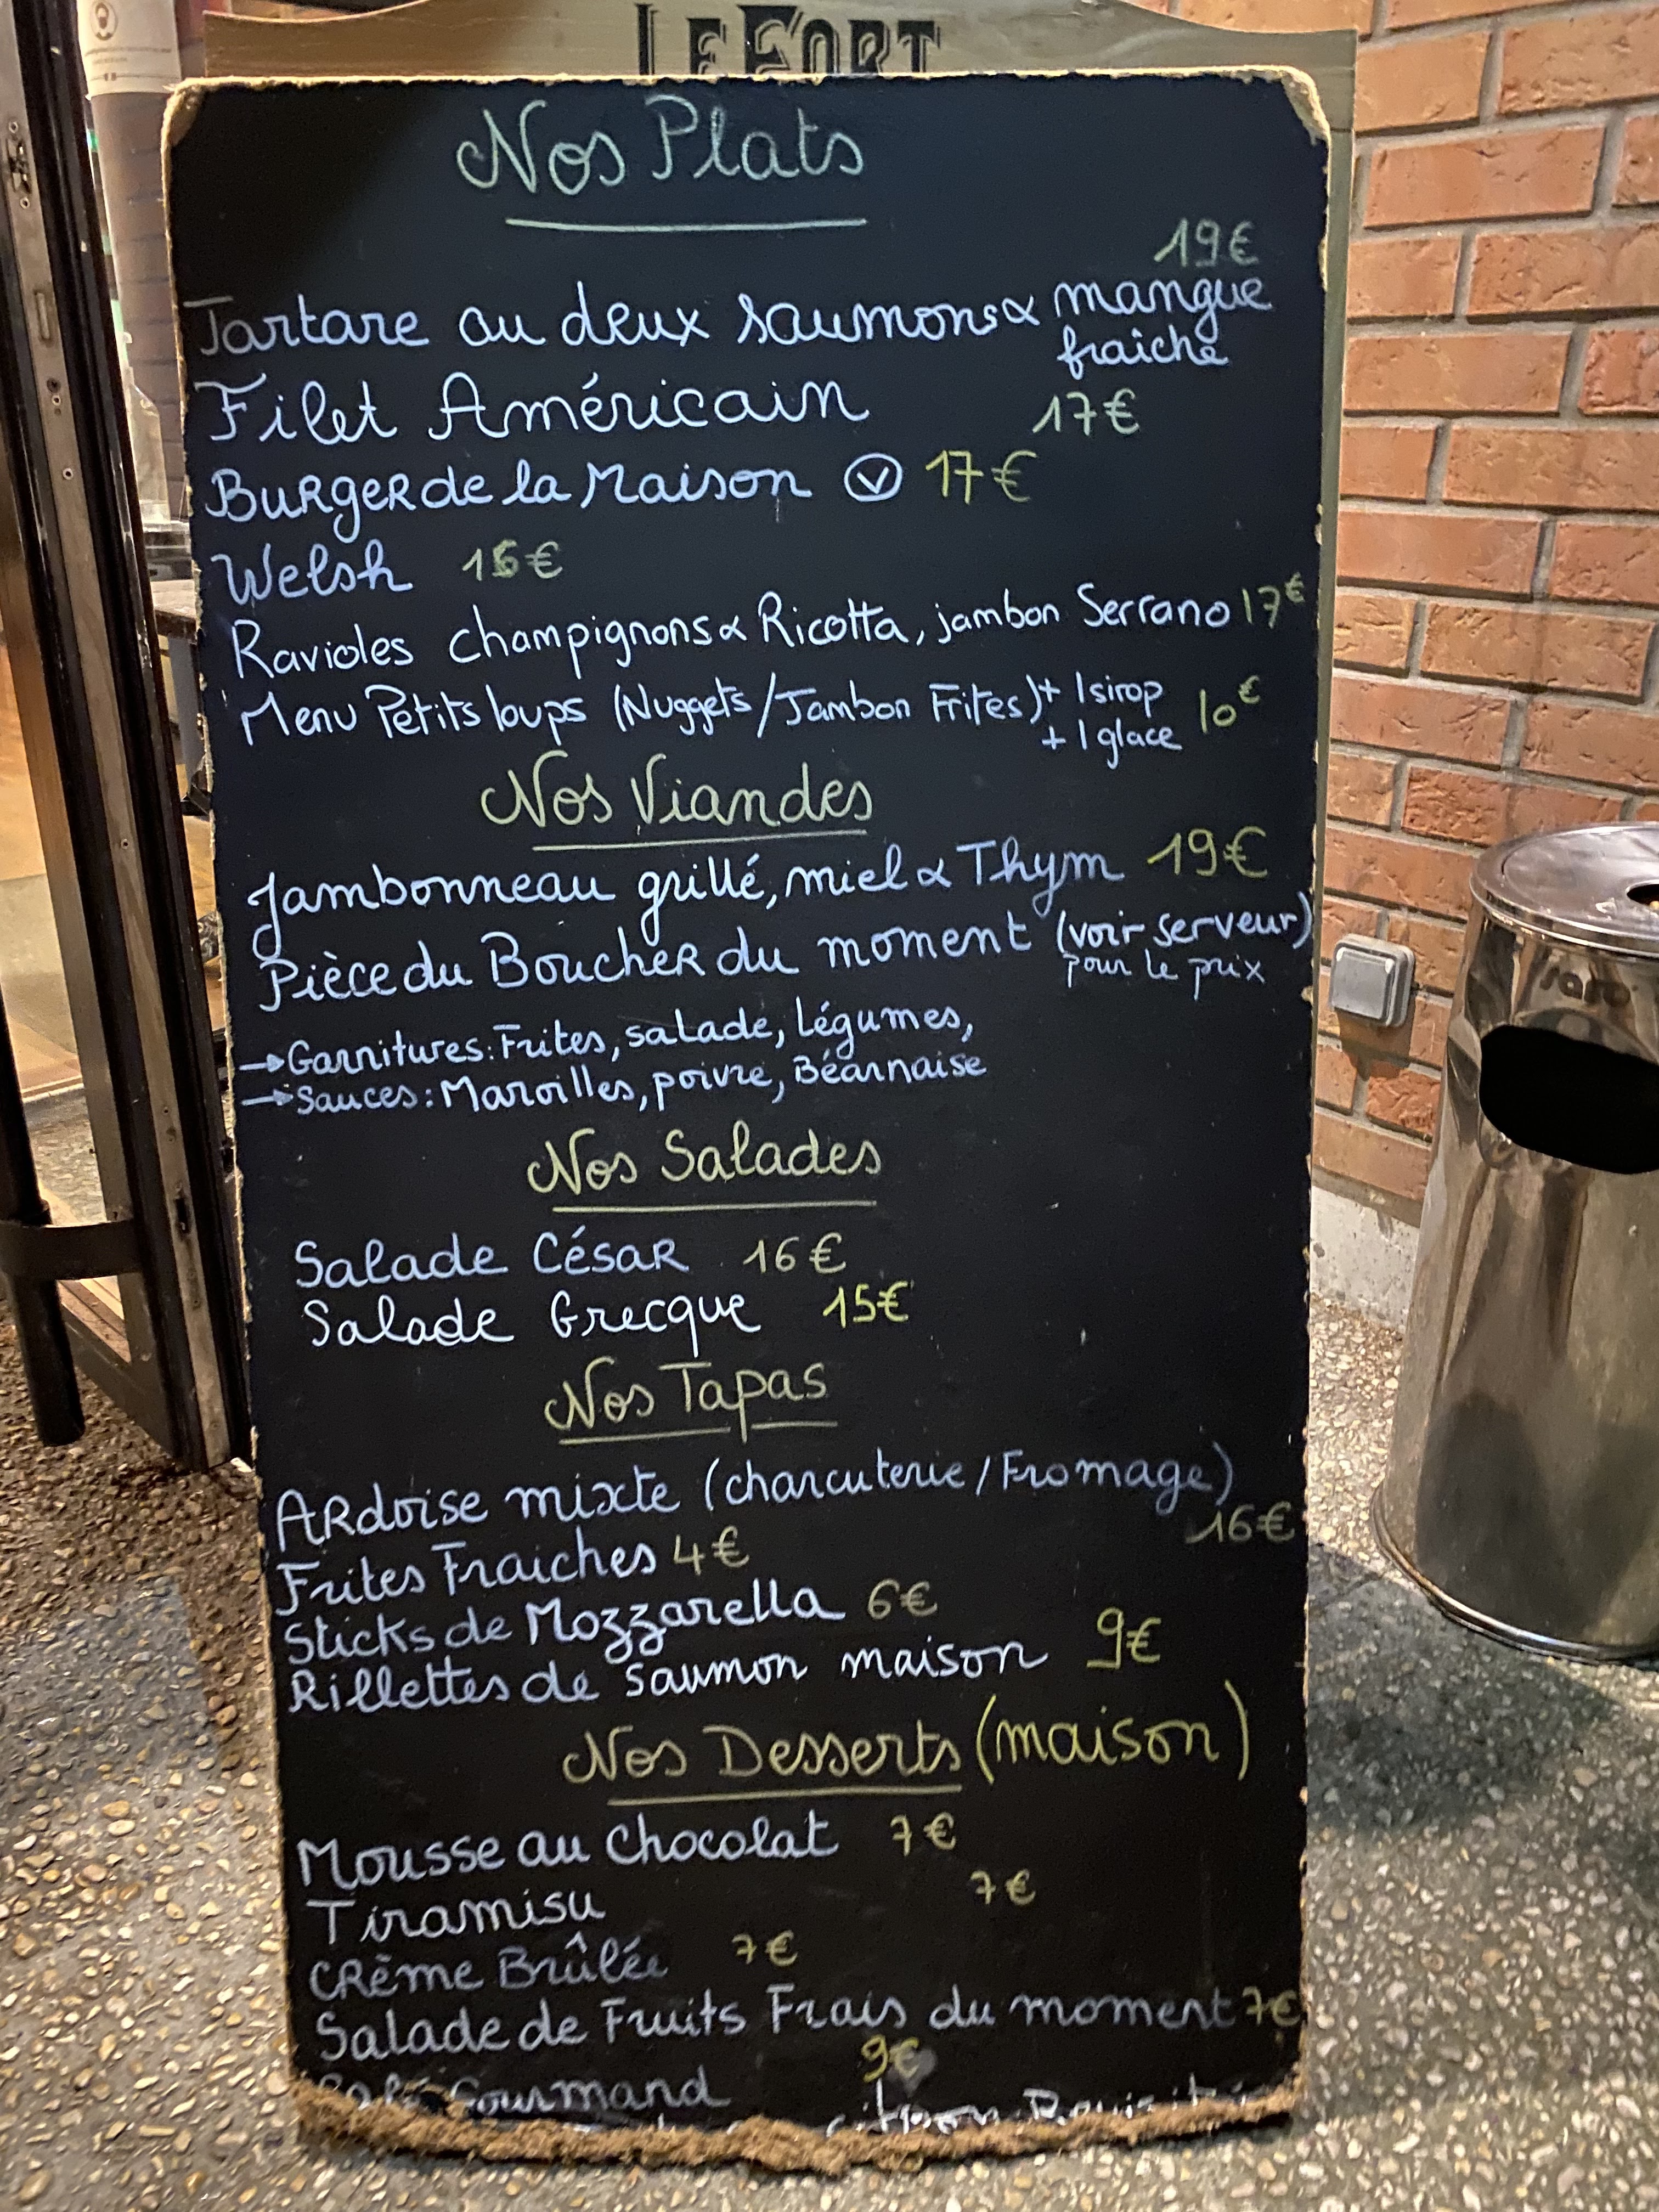 LE FORT
Nos Plats
19€
Tartare au deux saumons & mangue
fraiche
Filet Américain 17€
Burger de la Maison V 17€
Welsh €
Ravioles champignons & Ricotta, jambon Serrano 17€
Menu Petits loups (Nuggets/Jambon Frites) + 1 sirop 10€
+ 1 glace
Nos Viandes
Jambonneau grillé, miel & Thym 19€
Pièce du Boucher du moment (voir serveur)
pour le prix
→Garnitures: Frites, salade, Légumes,
→Sauces: Maroilles, poivre, Béarnaise
Nos Salades
Salade César 16€
Salade Grecque 15€
Nos Tapas
Ardoise mixte (charcuterie/Fromage)
16€
Frites Fraiches 4€
Sticks de Mozzarella 6€
Rillettes de Saumon maison 9€
Nos Desserts (maison)
Mousse au Chocolat 7€
Tiramisu 7€
Crème Brûlée 7€
Salade de Fruits Frais du moment 7€
Gourmand 9€